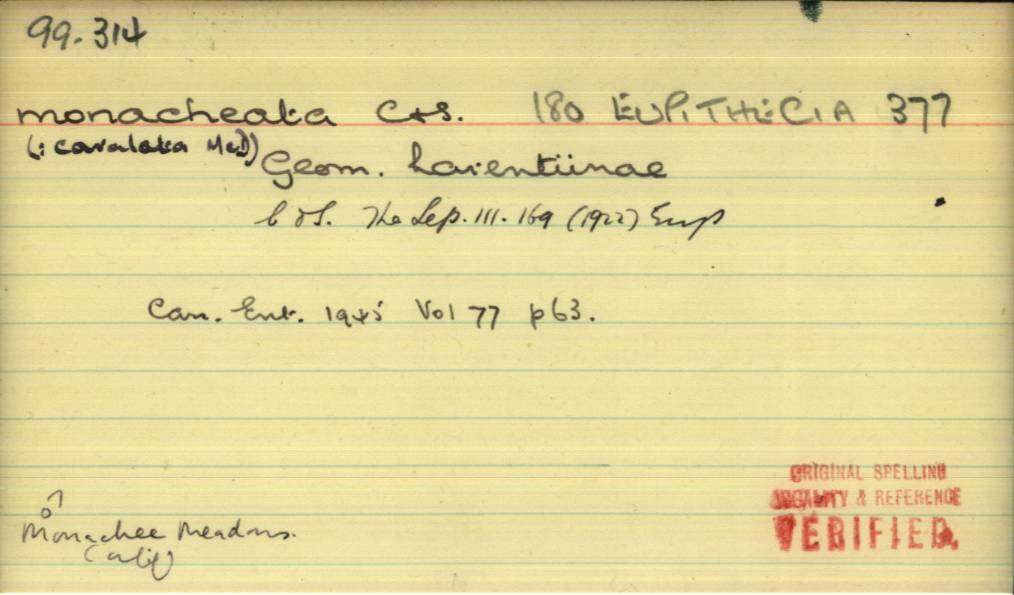 99.314
monacheata C&S. 180 EUPITHECIA 377
(: cavalata McD)
Geom. Larentiinae
C & S. The Lep. III. 169 (1922) Eup
Can. Ent. 1945 Vol 77 p63.
♂
Monachee Meadows.
Calif
ORIGINAL SPELLING
LOCALITY & REFERENCE
VERIFIED.